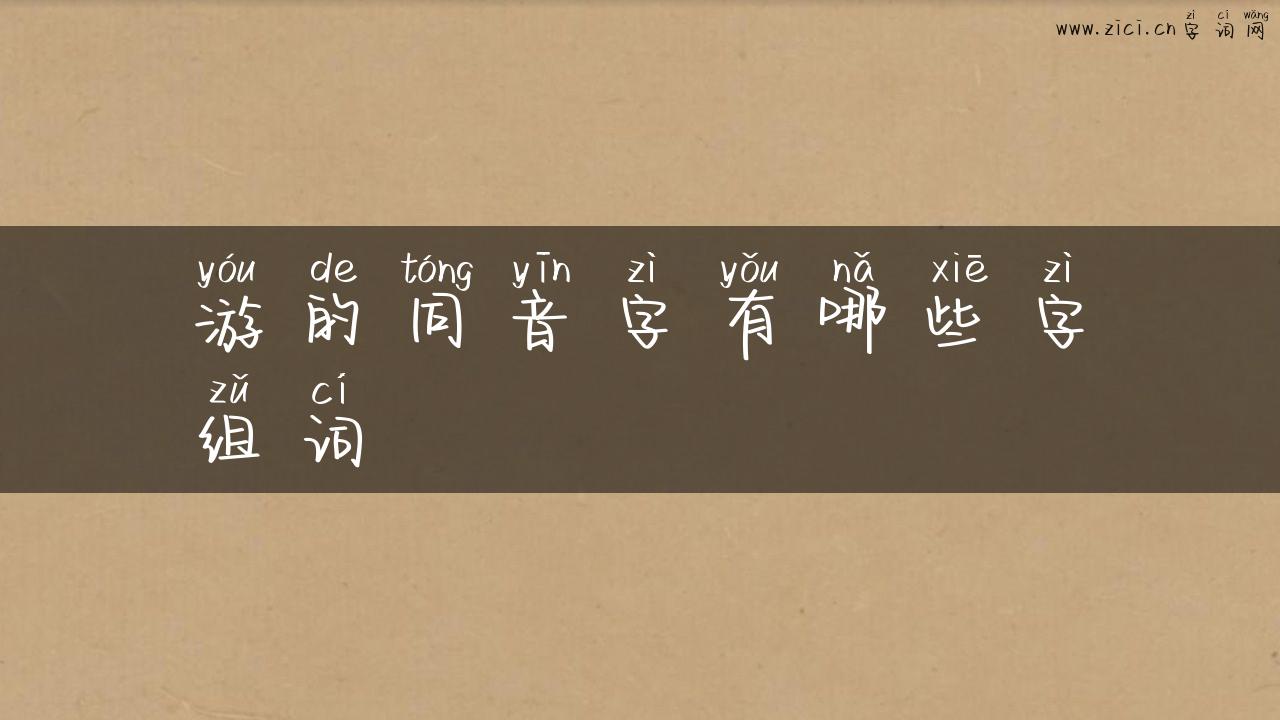 zì cí wǎng
www.zici.cn 字 词 网
yóu de tóng yīn zì yǒu nǎ xiē zì
游 的 同 音 字 有 哪 些 字
zǔ cí
组 词